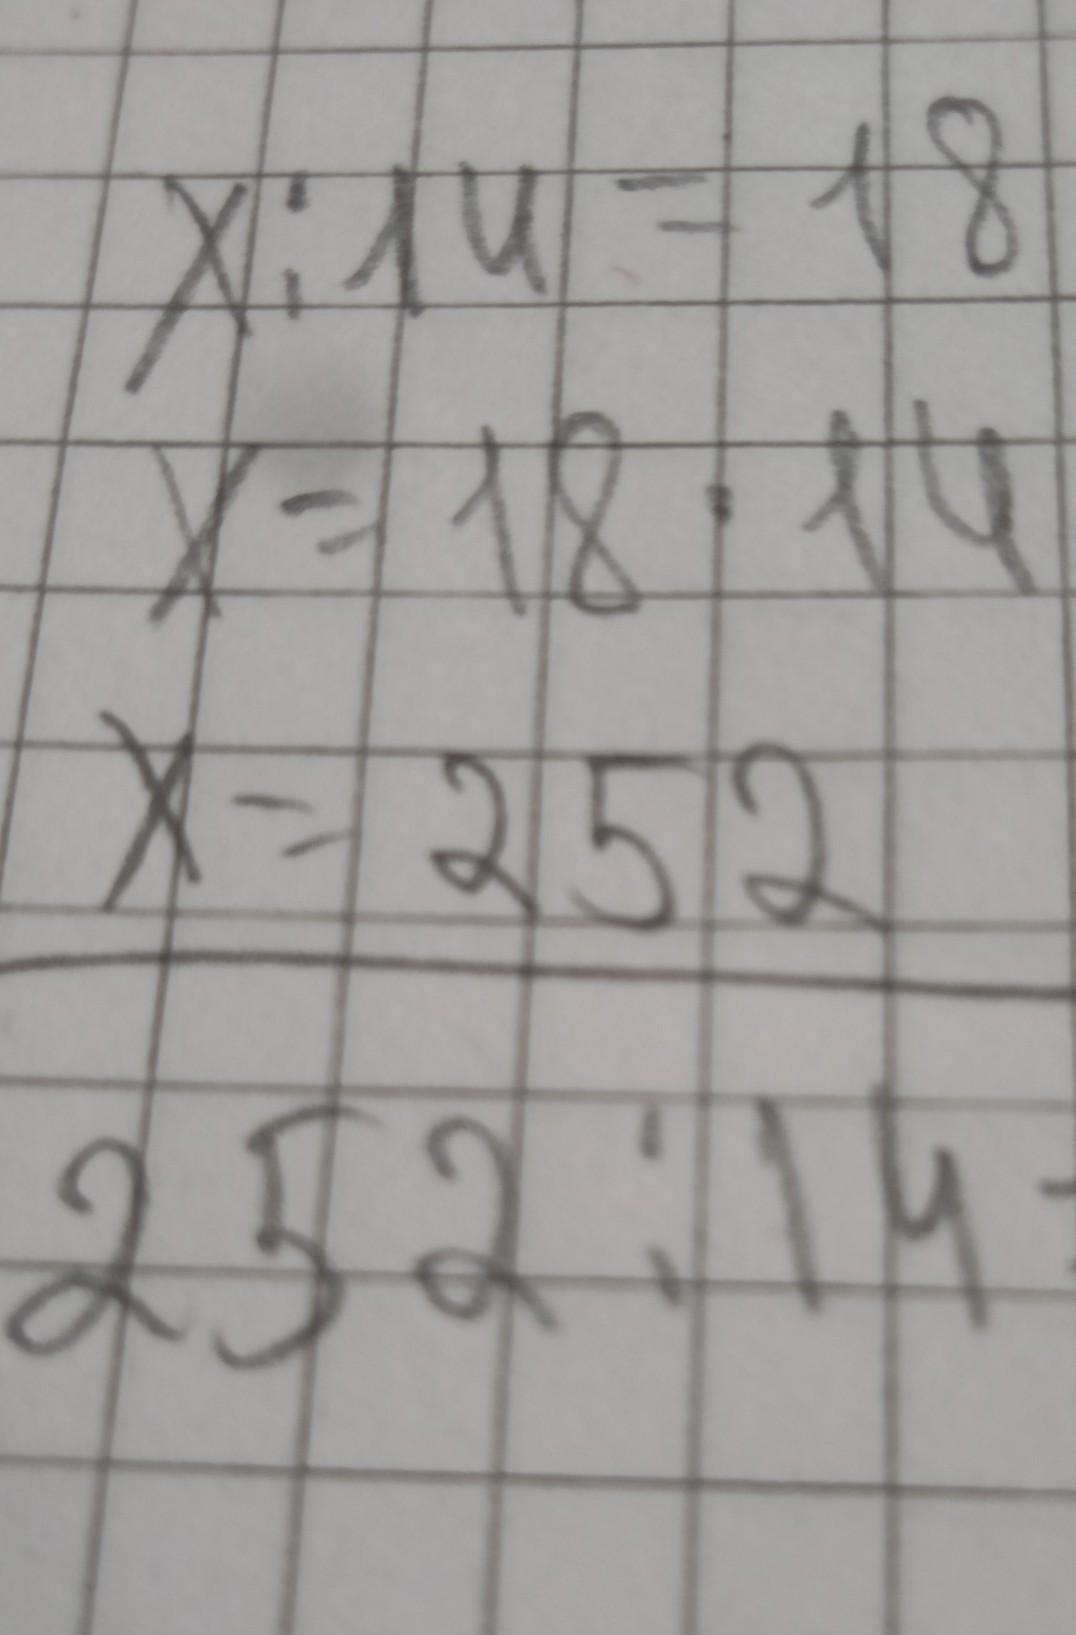 x:14=18
x=18·14
x=252
252:14=